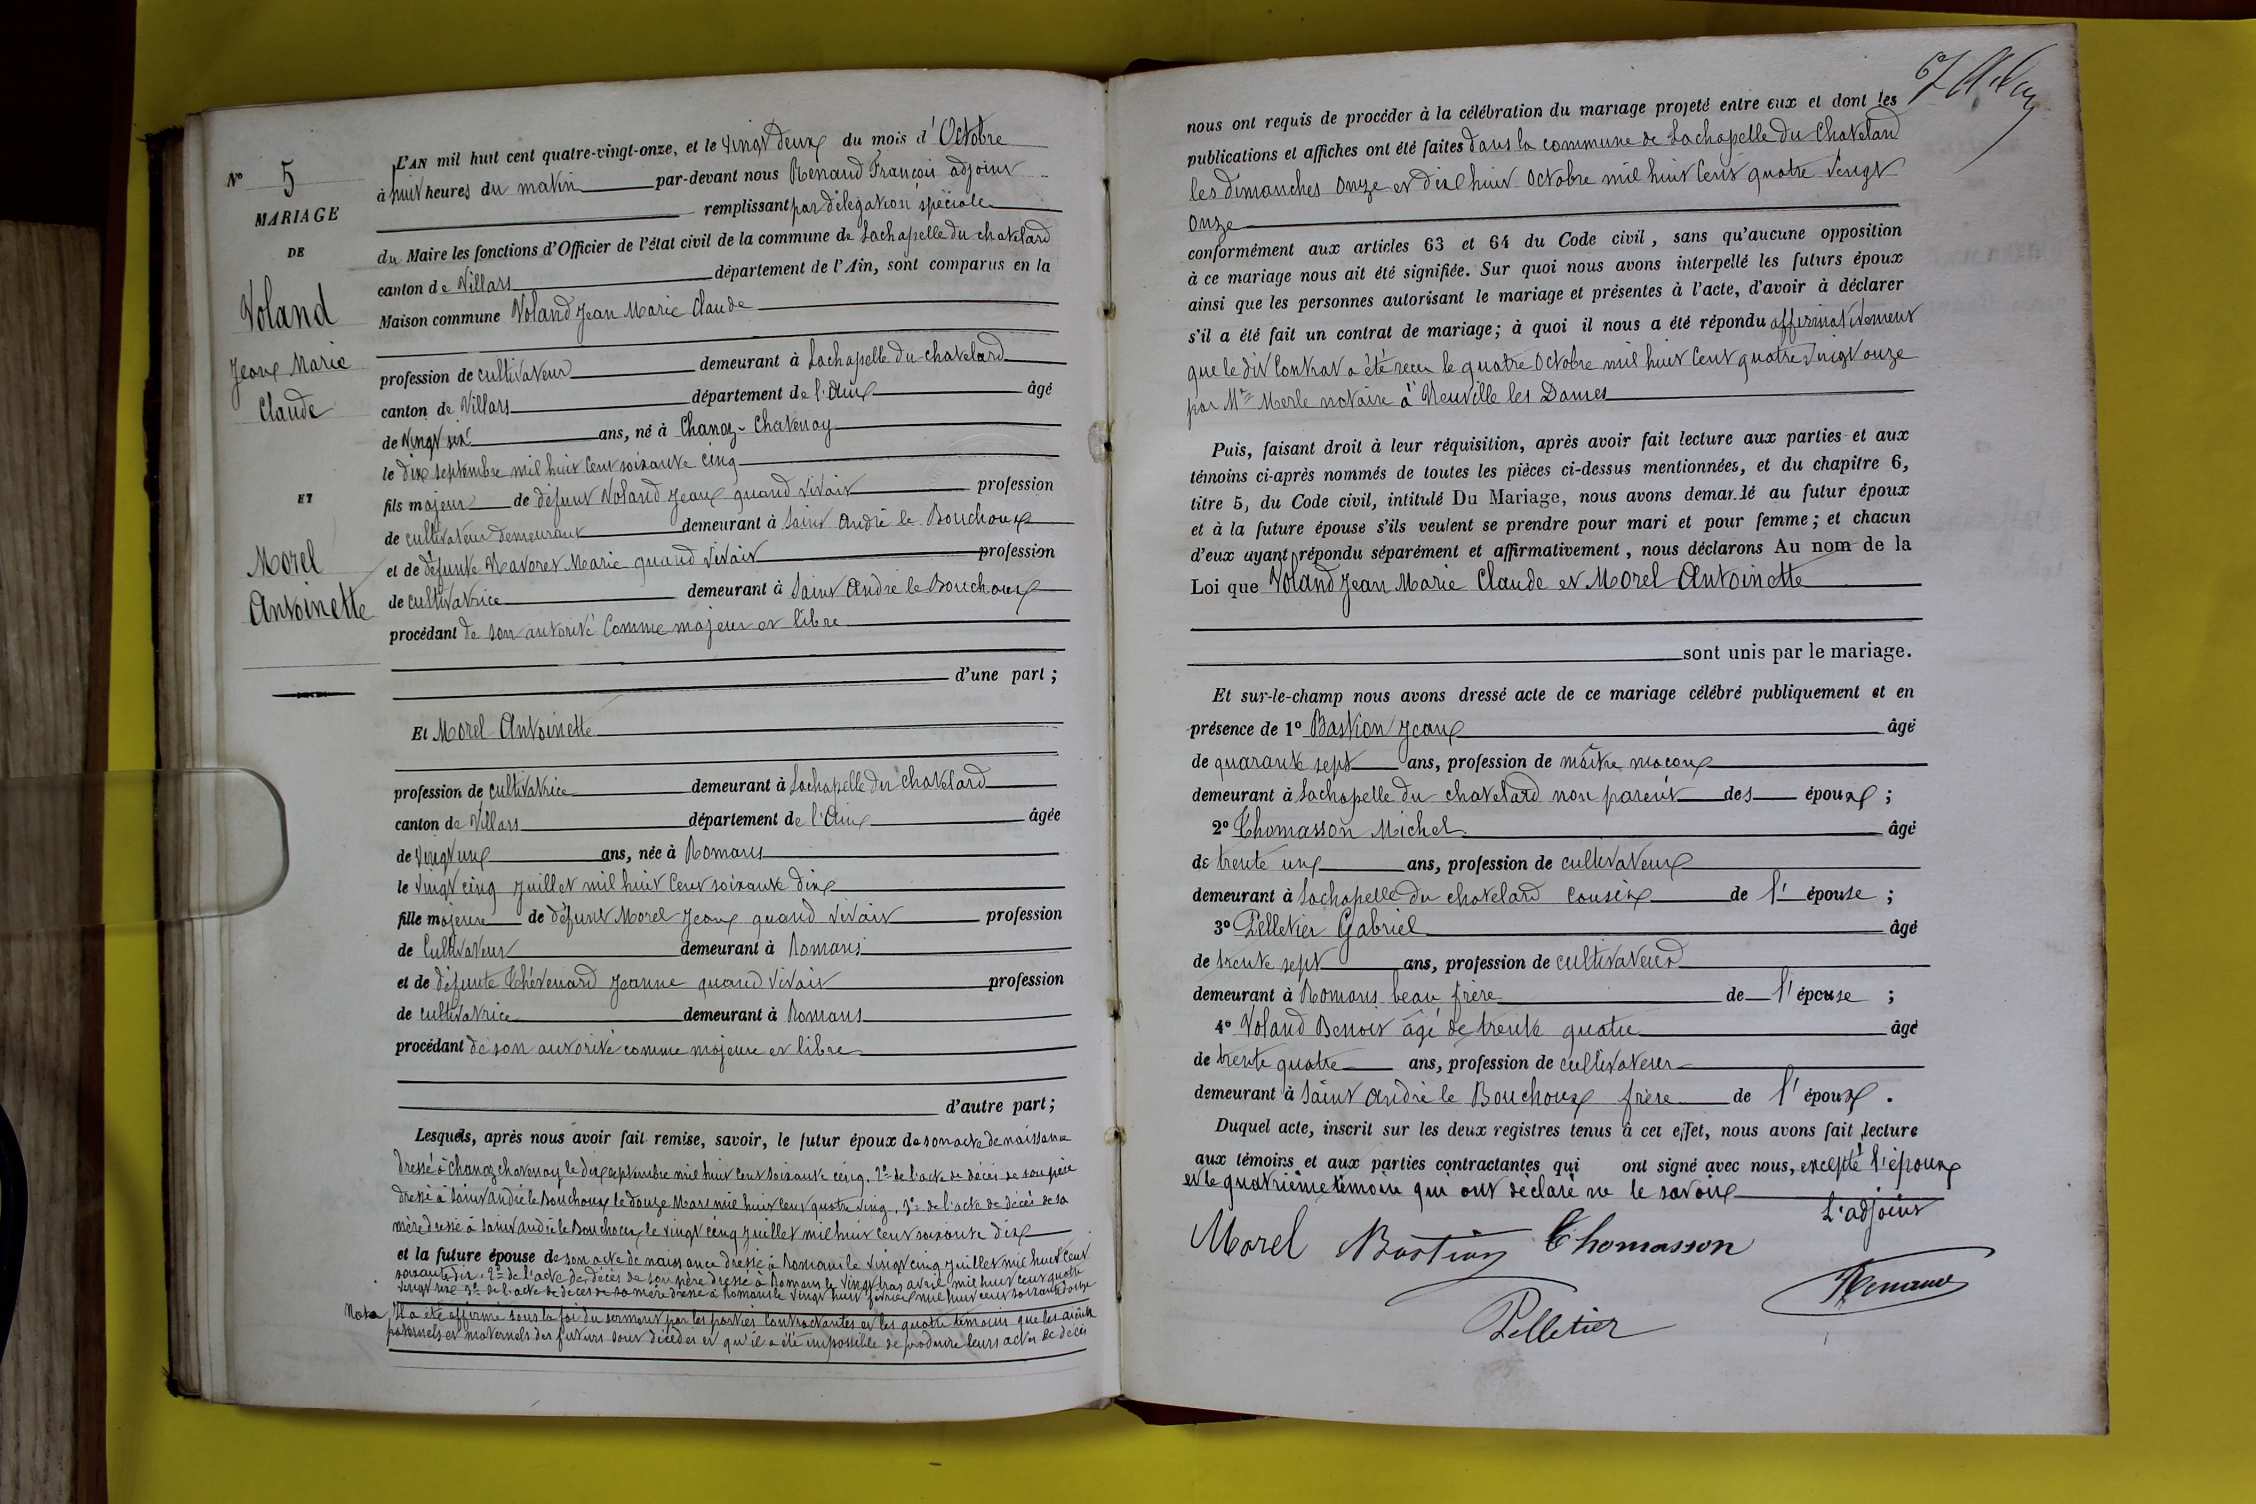 N° 5
MARIAGE
DE
Voland
Jean Marie
Claude
ET
Morel
Antoinette
L'AN mil huit cent quatre-vingt-onze, et le vingt deux du mois d'Octobre
à huit heures du matin par-devant nous Renaud François adjoint
remplissant par délégation spéciale
du Maire les fonctions d'Officier de l'état civil de la commune de Lachapelle du chatelard
canton de Villars département de l'Ain, sont comparus en la
Maison commune Voland Jean Marie Claude
profession de cultivateur demeurant à Lachapelle du chatelard
canton de Villars département de l'Ain âgé
de vingt six ans, né à Chanoz-Chatenay
le dix septembre mil huit cent soixante cinq
fils majeur de défunt Voland Jean quand vivait profession
de cultivateur demeurant demeurant à Saint André le Bouchoux
et de défunte Navoret Marie quand vivait profession
de cultivatrice demeurant à Saint André le Bouchoux
procédant de son autorité comme majeur et libre
d'une part ;
Et Morel Antoinette
profession de cultivatrice demeurant à Lachapelle du chatelard
canton de Villars département de l'Ain âgée
de vingt un ans, née à Romans
le vingt cinq Juillet mil huit cent soixante dix
fille majeure de défunt Morel Jean quand vivait profession
de cultivateur demeurant à Romans
et de défunte Thévenard Jeanne quand vivait profession
de cultivatrice demeurant à Romans
procédant de son autorité comme majeure et libre
d'autre part ;
Lesquels, après nous avoir fait remise, savoir, le futur époux de son acte de naissance
dressé à Chanoz chatenay le dix septembre mil huit cent soixante cinq. 2° de l'acte de décès de son père
dressé à Saint andré le Bouchoux le douze Mars mil huit cent quatre vingt. 3° de l'acte de décès de sa
mère dressé à Saint andré le Bouchoux le vingt cinq juillet mil huit cent soixante dix
et la future épouse de son acte de naissance dressé à Romans le vingt cinq juillet mil huit cent
soixante dix. 2° de l'acte de décès de son père dressé à Romans le vingt trois avril mil huit cent quatre
vingt 3° de l'acte de décès de sa mère dressé à Romans le vingt huit février mil huit cent soixante
Nota Il a été affirmé sous la foi du serment par les parties contractantes et les quatre témoins que les aïeuls
paternels et maternels des futurs sont décédés et qu'il a été impossible de produire leurs actes de décès
67
nous ont requis de procéder à la célébration du mariage projeté entre eux et dont les
publications et affiches ont été faites dans la commune de Lachapelle du Chatelard
les dimanches onze et dix huit Octobre mil huit cent quatre vingt
onze
conformément aux articles 63 et 64 du Code civil, sans qu'aucune opposition
à ce mariage nous ait été signifiée. Sur quoi nous avons interpellé les futurs époux
ainsi que les personnes autorisant le mariage et présentes à l'acte, d'avoir à déclarer
s'il a été fait un contrat de mariage; à quoi il nous a été répondu affirmativement
que le dit contrat a été reçu le quatre Octobre mil huit cent quatre vingt onze
par Me Merle notaire à Neuville les Dames
Puis, faisant droit à leur réquisition, après avoir fait lecture aux parties et aux
témoins ci-après nommés de toutes les pièces ci-dessus mentionnées, et du chapitre 6,
titre 5, du Code civil, intitulé Du Mariage, nous avons demandé au futur époux
et à la future épouse s'ils veulent se prendre pour mari et pour femme; et chacun
d'eux ayant répondu séparément et affirmativement, nous déclarons Au nom de la
Loi que Voland Jean Marie Claude et Morel Antoinette
sont unis par le mariage.
Et sur-le-champ nous avons dressé acte de ce mariage célébré publiquement et en
présence de 1° Bastion Jean âgé
de quarante sept ans, profession de maître maçon
demeurant à Lachapelle du chatelard non parent des époux ;
2° Thomasson Michel âgé
de trente un ans, profession de cultivateur
demeurant à Lachapelle du chatelard cousin de l'épouse ;
3° Pelletier Gabriel âgé
de trente sept ans, profession de cultivateur
demeurant à Romans beau frère de l'épouse ;
4° Voland Benoit âgé de trente quatre âgé
de trente quatre ans, profession de cultivateur
demeurant à Saint André le Bouchoux frère de l'époux.
Duquel acte, inscrit sur les deux registres tenus à cet effet, nous avons fait lecture
aux témoins et aux parties contractantes qui ont signé avec nous, excepté l'époux
et le quatrième témoin qui ont déclaré ne le savoir
L'adjoint
Morel Bastion Thomasson
Renaud
Pelletier